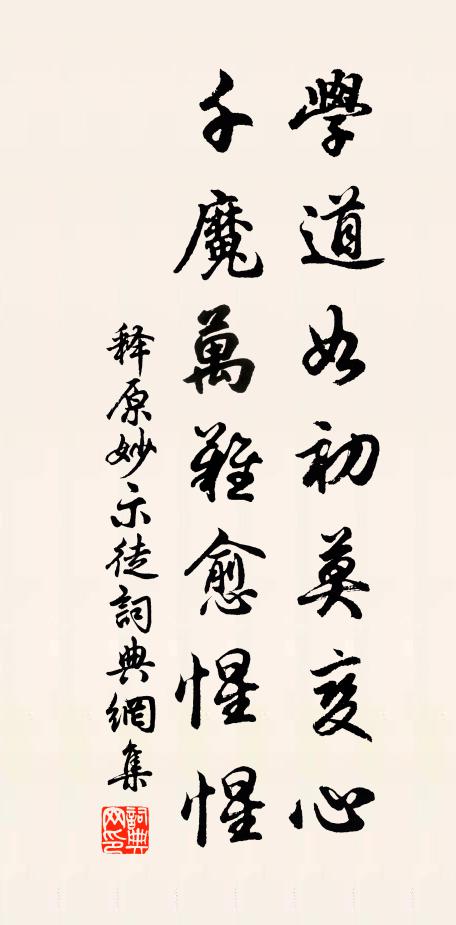 學道如初莫变心
千魔萬難愈惺惺
释原妙示徒詞典網集
詞典網印